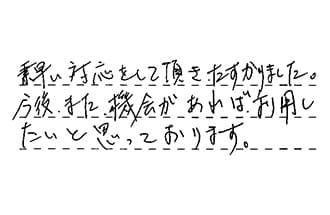 素早い対応をして頂きたすかりました。
今後、また機会があれば利用し
たいと思っております。